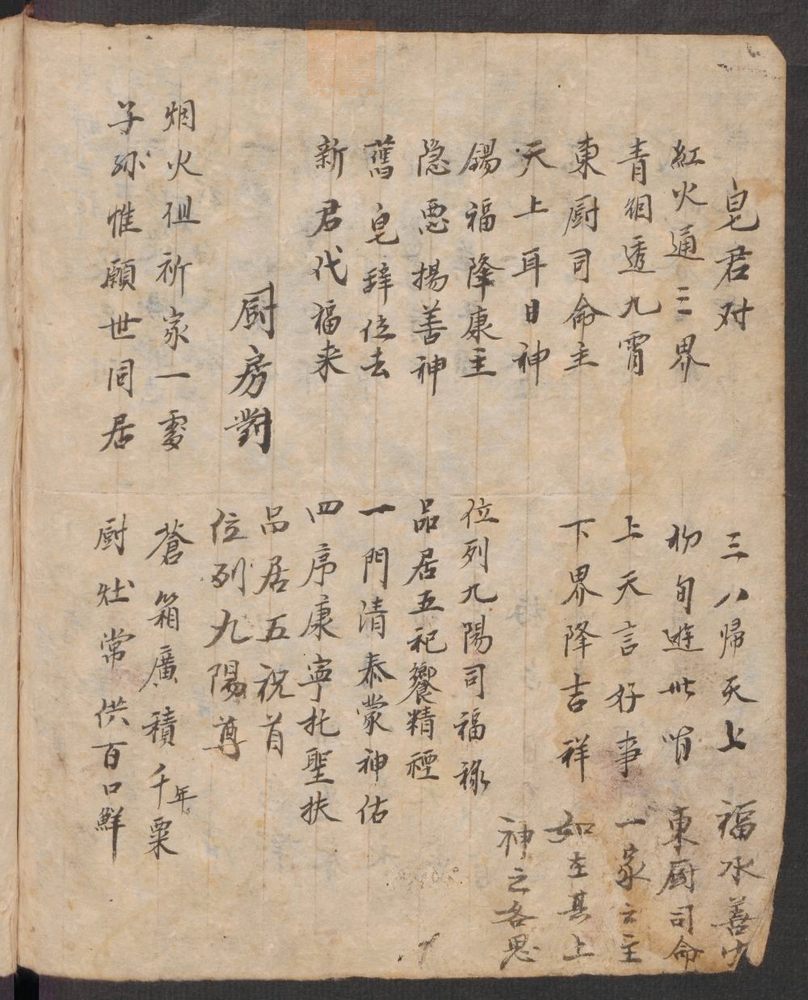 皂君对
紅火通三界
青絪透九霄
東厨司命主
天上耳日神
錫福降康主
隐恶揚善神
舊皂辞位去
新君代福来
厨房對
烟火祖祈家一處
子孫惟願世同居
三八帰天上
初旬遊世間
上天言好事
下界降吉祥
位列九陽司福祿
品居五祀饗精禋
一門清泰蒙神佑
四序康寧托聖扶
品居五祝首
位列九陽尊
蒼箱廣積千年粟
厨灶常供百口鮮
福水善
東厨司命
一家之主
如在其上
神之各思